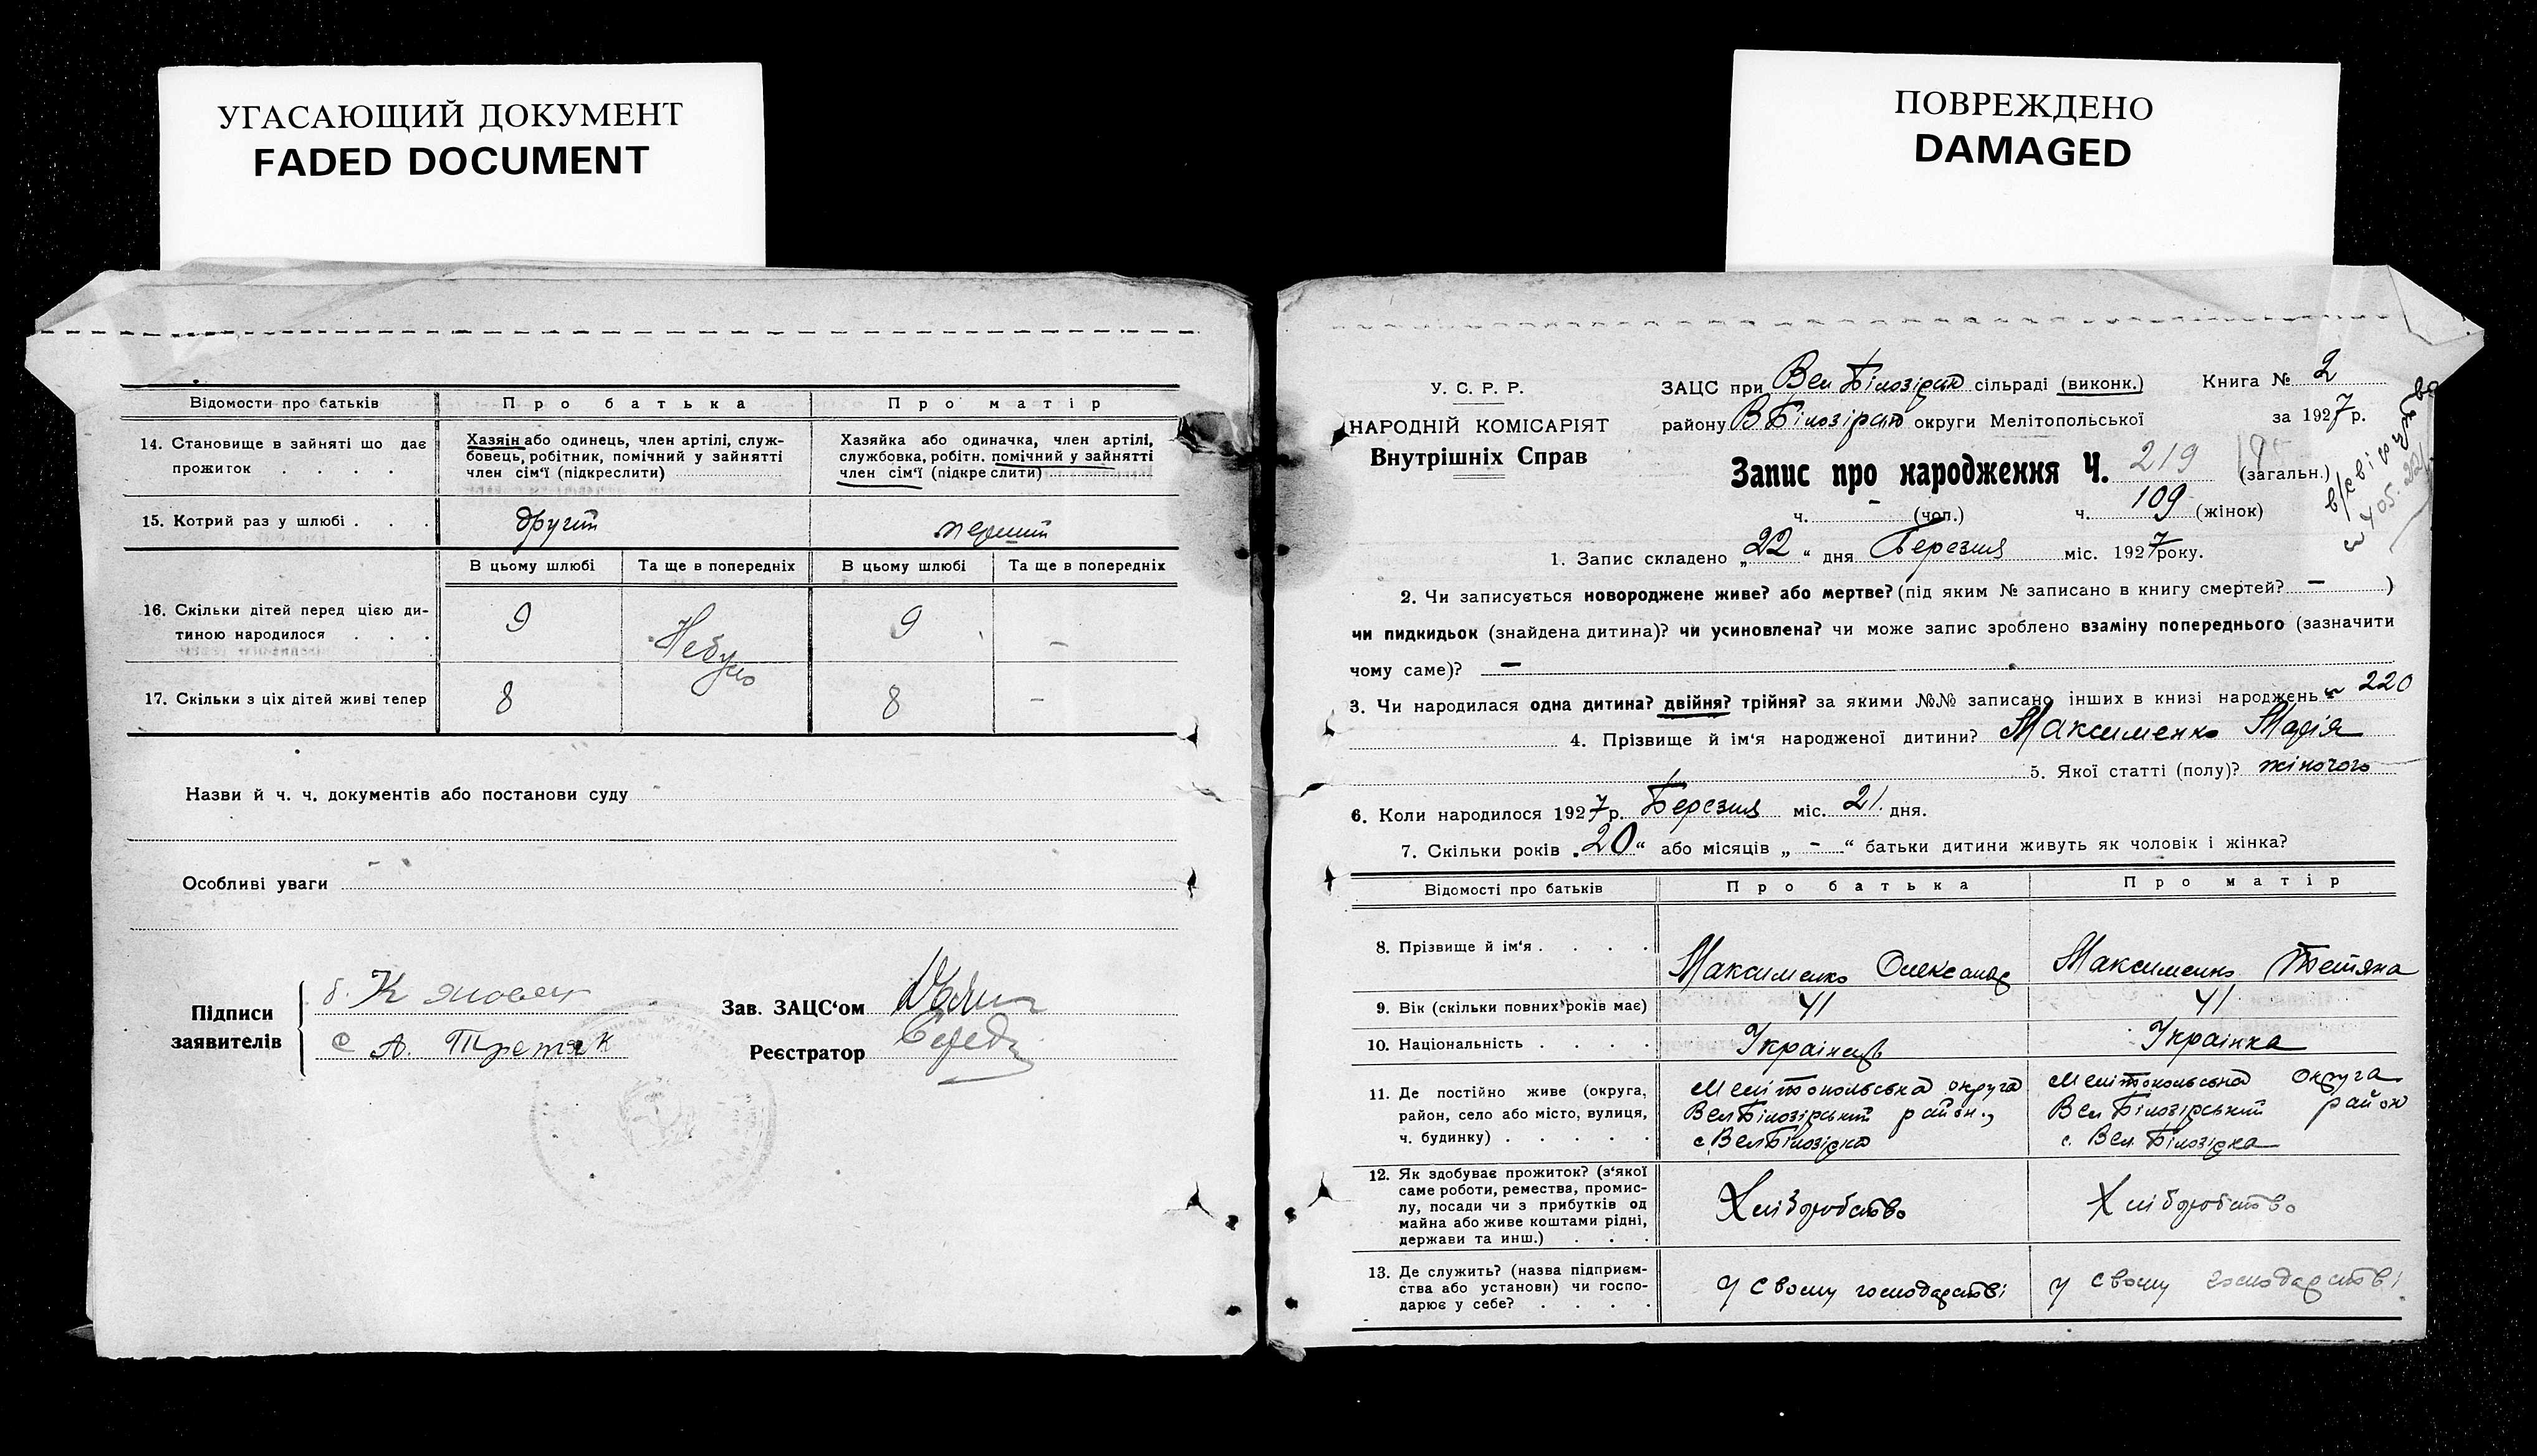 УГАСАЮЩИЙ ДОКУМЕНТ
FADED DOCUMENT
ПОВРЕЖДЕНО
DAMAGED
Відомости про батьків Про батька Про матір
14. Становище в зайняті що дає прожиток . . . .
Хазяін або одинець, член артілі, служ-
бовець, робітник, помічний у зайнятті
член сім'ї (підкреслити)
Хазяйка або одиначка, член артілі,
службовка, робітн. помічний у зайнятті
член сім'ї (підкреслити)
15. Котрий раз у шлюбі . . . другий перший
В цьому шлюбі Та ще в попередніх В цьому шлюбі Та ще в попередніх
16. Скільки дітей перед цією ди-
тиною народилося . . . 9 Небуло 9 –
17. Скільки з ціх дітей живі тепер 8 8 –
Назви й ч. ч. документів або постанови суду
Особливі уваги
Підписи
заявителів
А. Третяк
Зав. ЗАЦС'ом
Реєстратор
У. С. Р. Р.
НАРОДНІЙ КОМІСАРІЯТ
Внутрішніх Справ
ЗАЦС при Вел Білозірсь сільраді (виконк.) Книга № 2
району ВБілозірсь округи Мелітопольської за 1927 р.
Запис про народження Ч. 219 (загальн.)
ч. – (чол.) ч. 109 (жінок)
1. Запис складено „22“ дня Березня міс. 1927 року.
2. Чи записується новороджене живе? або мертве? (під яким № записано в книгу смертей? – )
чи пидкидьок (знайдена дитина)? чи усиновлена? чи може запис зроблено взаміну попереднього (зазначити
чому саме)? –
3. Чи народилася одна дитина? двійня? трійня? за якими №№ записано інших в книзі народжень 220
4. Прізвище й ім'я народженої дитини? Максименко Марія
5. Якої статті (полу)? жіночого
6. Коли народилося 1927 р. Березня міс. 21. дня.
7. Скільки років „20“ або місяців „ – “ батьки дитини живуть як чоловік і жінка?
Відомості про батьків Про батька Про матір
8. Прізвище й ім'я . . . . Максименко Олександ Максименко Тетяна
9. Вік (скільки повних років має) 41 41
10. Національність . . . . Украінець Украінка
11. Де постійно живе (округа,
район, село або місто, вулиця,
ч. будинку) . . . . .
Мелітопольська округа
Вел Білозірський район.,
с ВелБілозірка
Мелітопольська округа
Вел Білозірський район
с. Вел. Білозірка
12. Як здобуває прожиток? (з'якої
саме роботи, ремества, промис-
лу, посади чи з прибутків од
майна або живе коштами рідні,
держави та инш.) . . .
Хліборобство Хліборобство
13. Де служить? (назва підприєм-
ства або установи) чи госпо-
дарює у себе? . . . .
у своєму господарстві у своєму господарстві